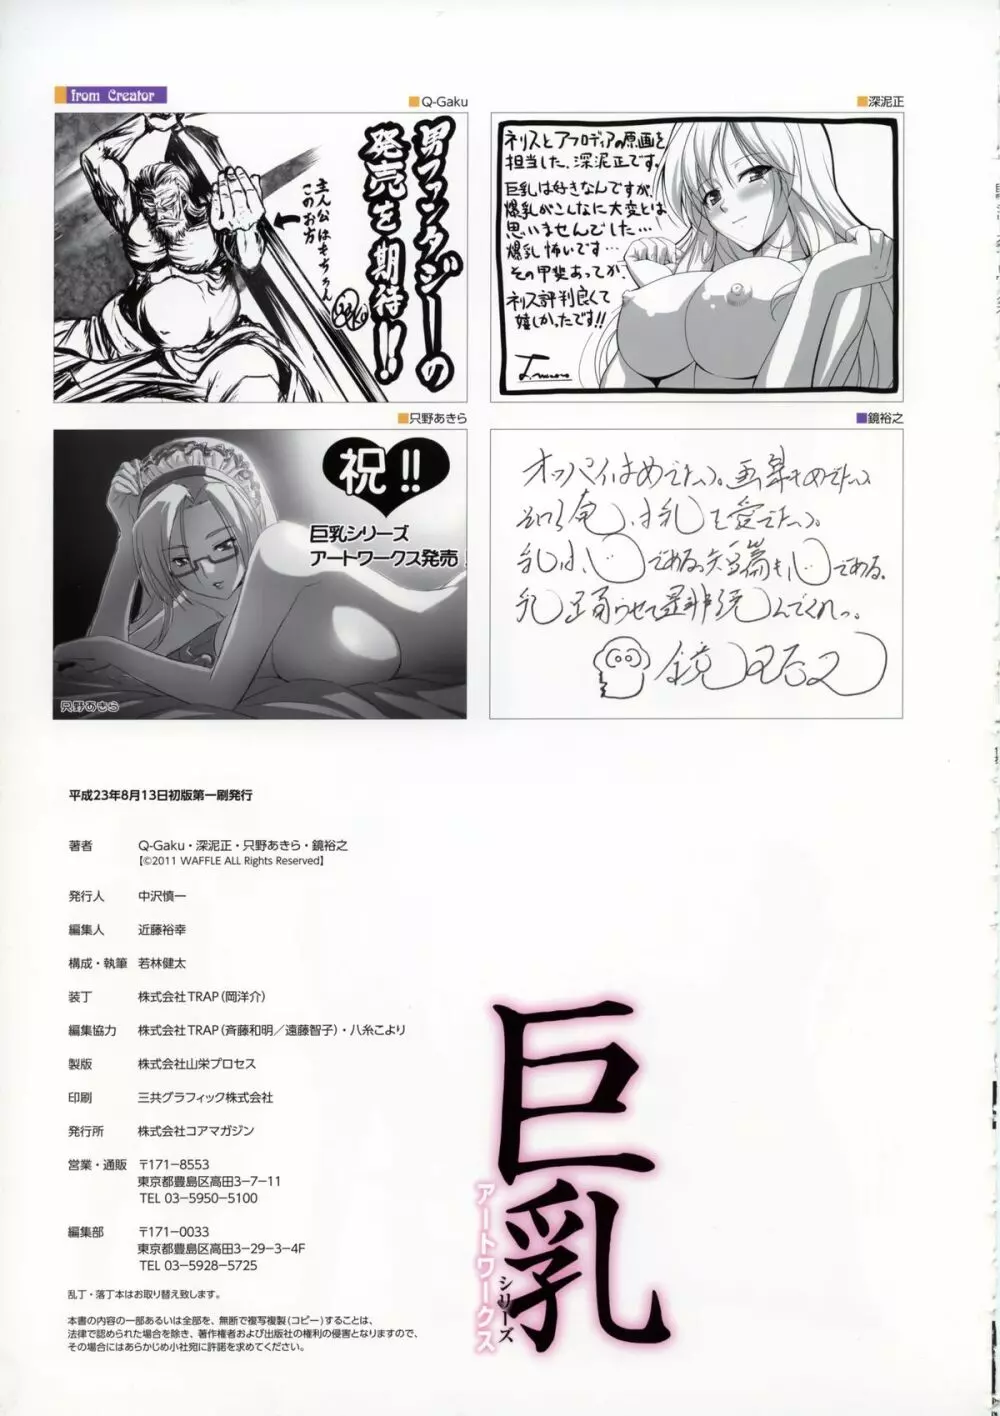 from Creator
Q-Gaku
男ファンタジーの
発売を期待!!
主人公はもちろん
このお方
深泥正
ネリスとアフロディアの原画を
担当した、深泥正です。
巨乳は好きなんですが、
爆乳がこんなに大変とは
思いませんでした…
爆乳怖いです…
その甲斐あってか、
ネリス評判良くて
嬉しかったです!!
只野あきら
祝!!
巨乳シリーズ
アートワークス発売!
只野あきら
鏡裕之
オッパイはめでたい。画集もめでたい
乳は、心である。短篇も、心である。
平成23年8月13日初版第一刷発行
著者 Q-Gaku・深泥正・只野あきら・鏡裕之
【©2011 WAFFLE ALL Rights Reserved】
発行人 中沢慎一
編集人 近藤裕幸
構成・執筆 若林健太
装丁 株式会社TRAP(岡洋介)
編集協力 株式会社TRAP(斉藤和明/遠藤智子)・八糸こより
製版 株式会社山栄プロセス
印刷 三共グラフィック株式会社
発行所 株式会社コアマガジン
営業・通販 〒171-8553
東京都豊島区高田3-7-11
TEL 03-5950-5100
編集部 〒171-0033
東京都豊島区高田3-29-3-4F
TEL 03-5928-5725
乱丁・落丁本はお取り替え致します。
本書の内容の一部あるいは全部を、無断で複写複製(コピー)することは、
法律で認められた場合を除き、著作権者および出版社の権利の侵害となりますので、
その場合にはあらかじめ小社宛に許諾を求めてください。
巨乳
シリーズ
アートワークス